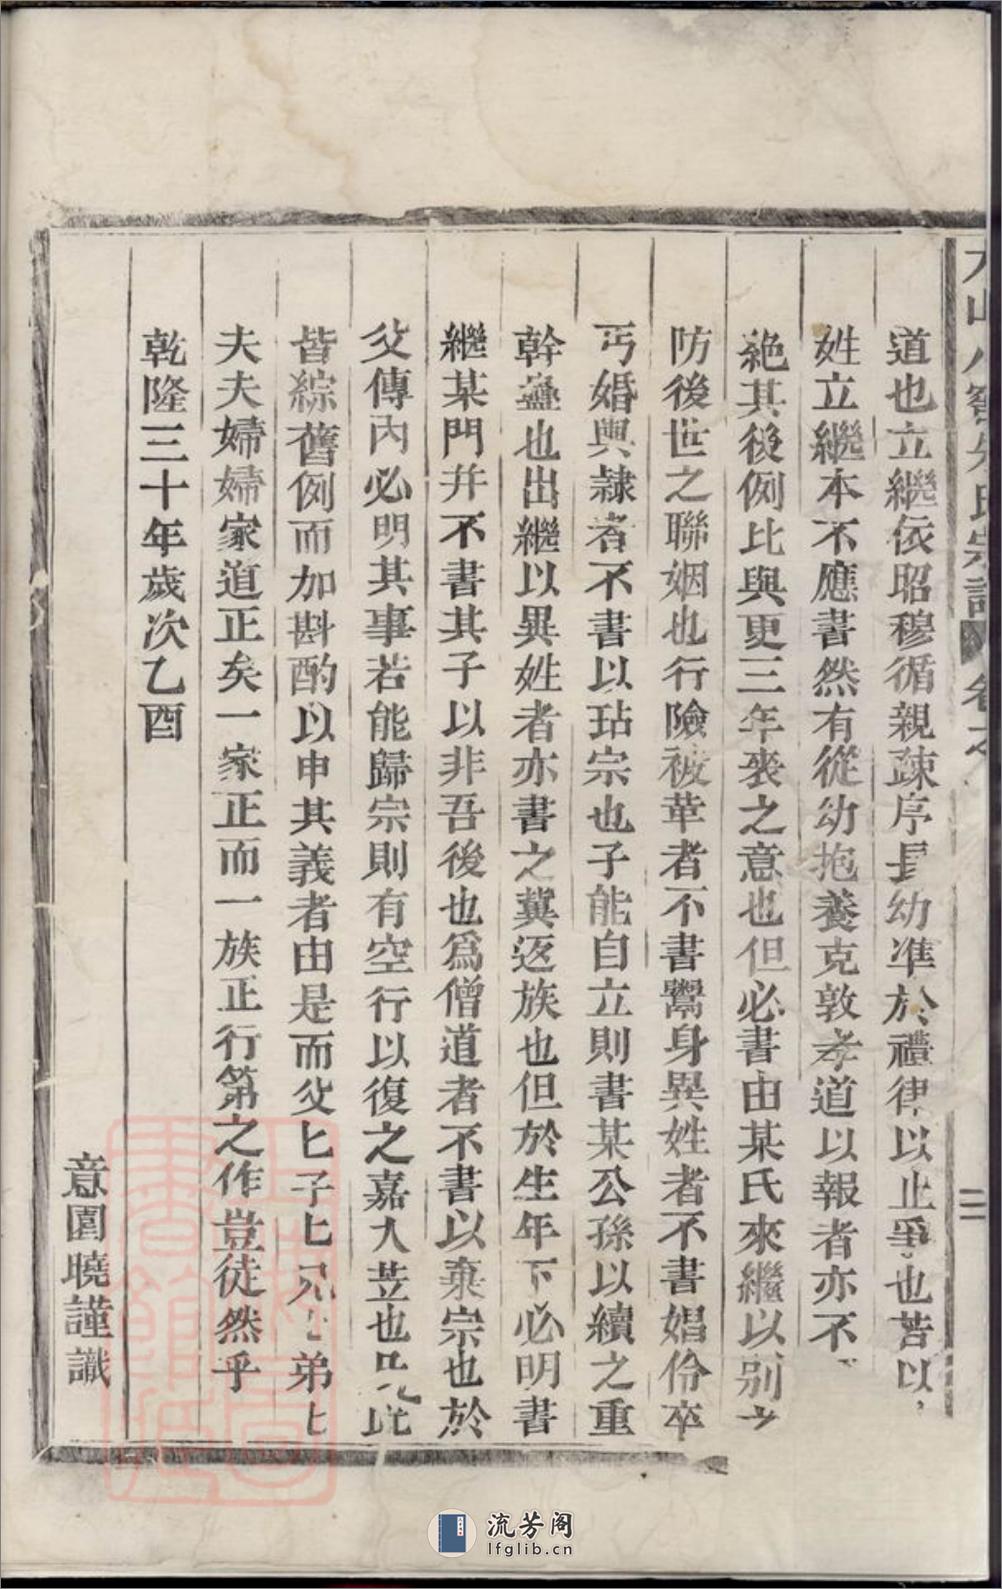 道也立繼依昭穆循親疎序長幼准於禮律以止爭也若以
姓立繼本不應書然有從幼抱養克敦孝道以報者亦不
絶其後例比與更三年喪之意也但必書由某氏來繼以別之
防後世之聯姻也行險被革者不書鬻身異姓者不書娼伶卒
丐婚與隷者不書以玷宗也子能自立則書某公孫以續之重
幹蠱也出繼以異姓者亦書之冀返族也但於生年下必明書
繼某門并不書其子以非吾後也爲僧道者不書以棄宗也於
父傳內必明其事若能歸宗則有空行以復之嘉入苙也凡此
皆綜舊例而加斟酌以申其義者由是而父匕子匕兄匕弟匕
夫夫婦婦家道正矣一家正而一族正行第之作豈徒然乎
乾隆三十年歲次乙酉
意園曉謹識
氏宗譜 卷之 二
流芳阁
lfglib.cn